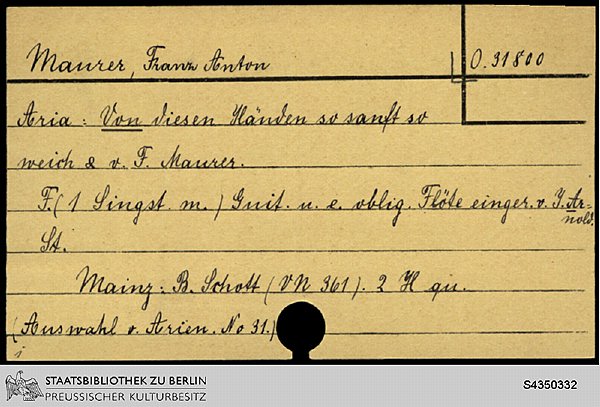 Maurer, Franz Anton
O. 31800
Aria: Von diesen Händen so sanft so
weich & v. F. Maurer.
F. (1 Singst. m.) Guit. u. e. oblig. Flöte einger. v. J. Ar-
nold.
St.
Mainz: B. Schott (VN 361). 2 H qu.
(Auswahl v. Arien. No 31.)
STAATSBIBLIOTHEK ZU BERLIN
PREUSSISCHER KULTURBESITZ
S4350332